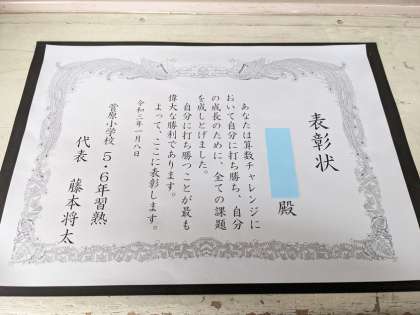 表彰状
殿
あなたは算数チャレンジに
おいて自分に打ち勝ち、自分
の成長のために、全ての課題
を成しとげました。
自分に打ち勝つことが最も
偉大な勝利であります。
よって、ここに表彰します。
令和三年一月八日
菅原小学校 5・6年習熟
代表 藤本将太